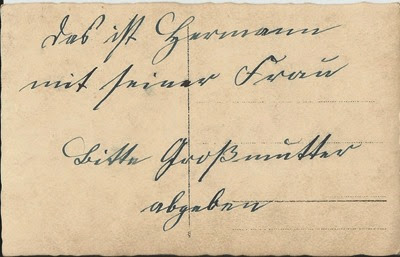 Das ist Hermann
mit seiner Frau
Bitte Großmutter
abgeben